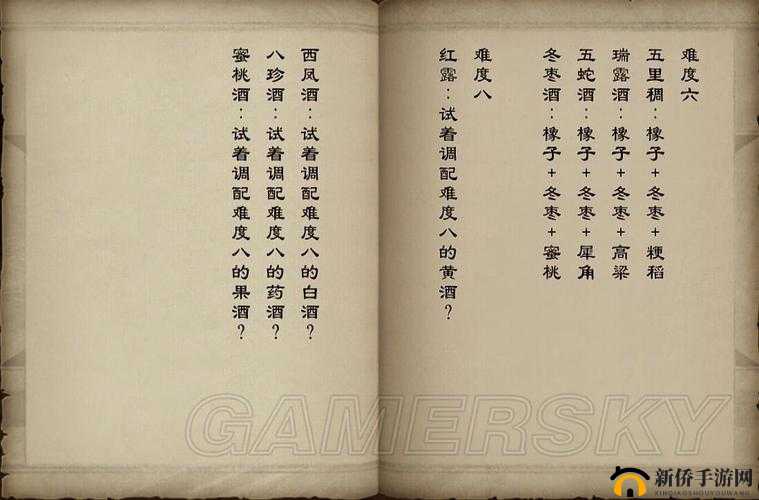 难度六
五里稠：橡子+冬枣+粳稻
瑞露酒：橡子+冬枣+高粱
五蛇酒：橡子+冬枣+犀角
冬枣酒：橡子+冬枣+蜜桃
难度八
红露：试着调配难度八的黄酒？
西凤酒：试着调配难度八的白酒？
八珍酒：试着调配难度八的药酒？
蜜桃酒：试着调配难度八的果酒？
GAMERSKY
新侨手游网
XINQIAOSHOUYOUWANG